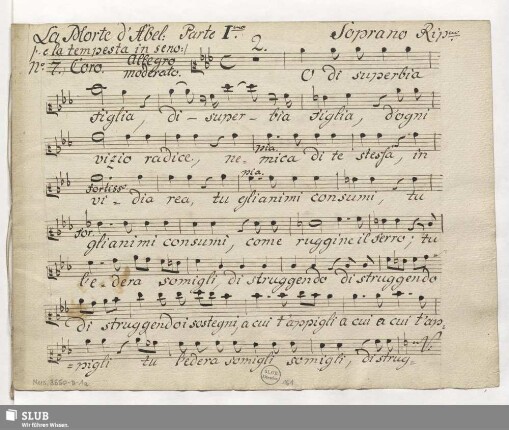 La Morte d'Abel: Parte I.mo Soprano Rip.no
/: e la tempesta in seno:/ 2.
No. 7. Coro. Allegro
moderato.
O di superbia
figlia, di - super - bia figlia, d'ogni
vizio radice, ne - mica di te stessa, in
pia.
vi - dia rea, tu gl'ianimi consumi, tu
fortiss: pia.
glianimi consumi, come ruggine il ferro; tu
for.
l'e - dera somigli, di struggendo di struggendo
di struggendo i sostegni, a cui t'appigli a cui a cui t'ap=
=pigli tu l'edera somigli somigli, di strug-
Mus. 3550-D-1a
SLUB
161
SLUB
Wir führen Wissen.